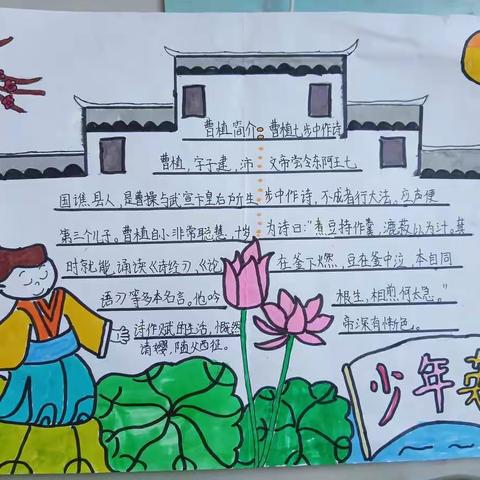 曹植简介
曹植,字子建,沛
国谯县人,是曹操与武宣卞皇后所生
第三个儿子。曹植自小非常聪慧,十岁
时就能诵读《诗经》、《论
语》等多本名言。他吟
诗作赋的生活,慨然
请缨,随父西征。
曹植七步中作诗
文帝尝令东阿王七
步中作诗,不成者行大法,应声便
为诗曰:"煮豆持作羹,漉菽以为汁。萁
在釜下燃,豆在釜中泣,本自同
根生,相煎何太急。"
帝深有惭色。
少年英